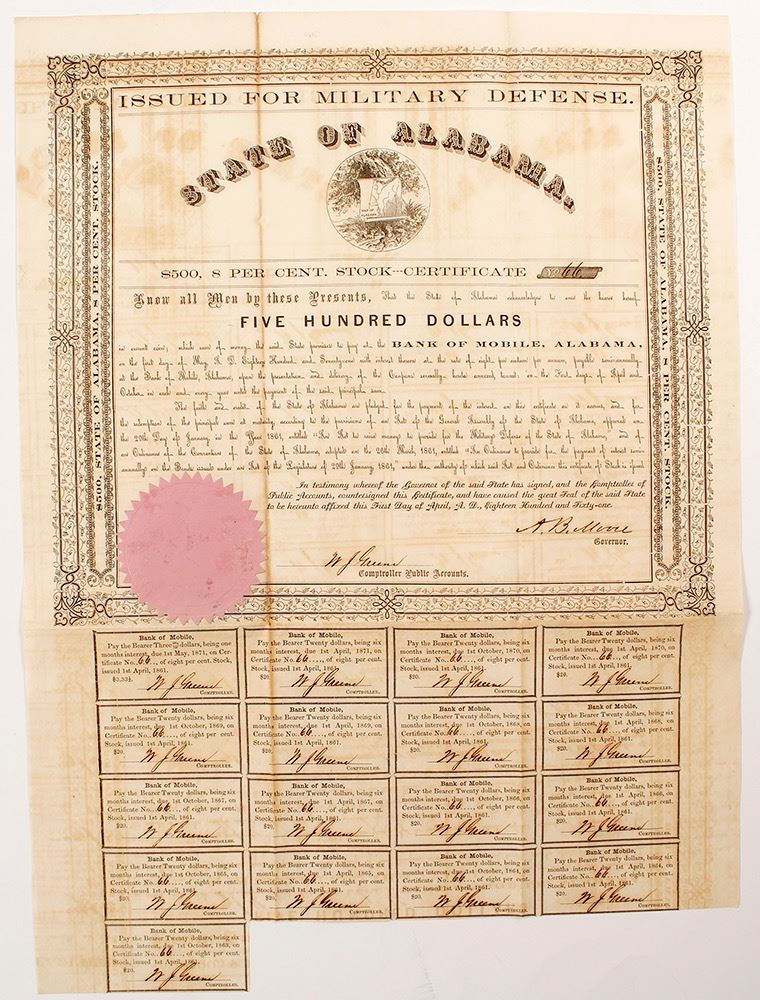 ISSUED FOR MILITARY DEFENSE.
STATE OF ALABAMA,
$500, 8 PER CENT. STOCK---CERTIFICATE No. 66
Know all Men by these Presents, That the State of Alabama acknowledges to owe the bearer hereof
FIVE HUNDRED DOLLARS
in current coin; which sum of money the said State promises to pay at the BANK OF MOBILE, ALABAMA,
on the first day of May A. D. Eighteen Hundred and Seventy-one with interest thereon at the rate of eight per centum per annum, payable semi-annually
at the Bank of Mobile, Alabama, upon the presentation and delivery of the Coupons severally hereto annexed, hereof, on the First days of April and
October in each and every year until the payment of the said principal sum.
The faith and credit of the State of Alabama are pledged for the payment of the interest on this certificate as it accrues, and for
the redemption of the principal sum at maturity, according to the provisions of an Act of the General Assembly of the State of Alabama, approved on
the 29th Day of January in the Year 1861, entitled "An Act to raise moneys to provide for the Military Defense of the State of Alabama," and of
an Ordinance of the Convention of the State of Alabama, adopted on the 20th March, 1861, entitled "An Ordinance to provide for the payment of interest semi-
annually on the Bonds issued under an Act of the Legislature of 29th January 1861," under the authority of which said Act and Ordinance this certificate of Stock is issued.
In testimony whereof the Governor of the said State has signed, and the Comptroller of
Public Accounts, countersigned this Certificate, and have caused the great Seal of the said State
to be hereunto affixed this First Day of April, A. D., Eighteen Hundred and Sixty-one.
A. B. Moore
Governor.
W J Greene
Comptroller Public Accounts.
$500, STATE OF ALABAMA, 8 PER CENT. STOCK.
$500, STATE OF ALABAMA, 8 PER CENT. STOCK.
Bank of Mobile,
Pay the Bearer Three dollars, being one
months interest, due 1st May, 1871, on Cer-
tificate No. 66, of eight per cent. Stock,
issued 1st April, 1861.
$3,33⅓.
W J Greene
COMPTROLLER.
Bank of Mobile,
Pay the Bearer Twenty dollars, being six
months interest, due 1st April, 1871, on
Certificate No. 66, of eight per cent.
Stock, issued 1st April, 1861.
$20.
W J Greene
COMPTROLLER.
Bank of Mobile,
Pay the Bearer Twenty dollars, being six
months interest, due 1st October, 1870, on
Certificate No. 66, of eight per cent.
Stock, issued 1st April, 1861.
$20.
W J Greene
COMPTROLLER.
Bank of Mobile,
Pay the Bearer Twenty dollars, being six
months interest, due 1st April, 1870, on
Certificate No. 66, of eight per cent.
Stock, issued 1st April, 1861.
$20.
W J Greene
COMPTROLLER.
Bank of Mobile,
Pay the Bearer Twenty dollars, being six
months interest, due 1st October, 1869, on
Certificate No. 66, of eight per cent.
Stock, issued 1st April, 1861.
$20.
W J Greene
COMPTROLLER.
Bank of Mobile,
Pay the Bearer Twenty dollars, being six
months interest, due 1st April, 1869, on
Certificate No. 66, of eight per cent.
Stock, issued 1st April, 1861.
$20.
W J Greene
COMPTROLLER.
Bank of Mobile,
Pay the Bearer Twenty dollars, being six
months interest, due 1st October, 1868, on
Certificate No. 66, of eight per cent.
Stock, issued 1st April, 1861.
$20.
W J Greene
COMPTROLLER.
Bank of Mobile,
Pay the Bearer Twenty dollars, being six
months interest, due 1st April, 1868, on
Certificate No. 66, of eight per cent.
Stock, issued 1st April, 1861.
$20.
W J Greene
COMPTROLLER.
Bank of Mobile,
Pay the Bearer Twenty dollars, being six
months interest, due 1st October, 1867, on
Certificate No. 66, of eight per cent.
Stock, issued 1st April, 1861.
$20.
W J Greene
COMPTROLLER.
Bank of Mobile,
Pay the Bearer Twenty dollars, being six
months interest, due 1st April, 1867, on
Certificate No. 66, of eight per cent.
Stock, issued 1st April, 1861.
$20.
W J Greene
COMPTROLLER.
Bank of Mobile,
Pay the Bearer Twenty dollars, being six
months interest, due 1st October, 1866, on
Certificate No. 66, of eight per cent.
Stock, issued 1st April, 1861.
$20.
W J Greene
COMPTROLLER.
Bank of Mobile,
Pay the Bearer Twenty dollars, being six
months interest, due 1st April, 1866, on
Certificate No. 66, of eight per cent.
Stock, issued 1st April, 1861.
$20.
W J Greene
COMPTROLLER.
Bank of Mobile,
Pay the Bearer Twenty dollars, being six
months interest, due 1st October, 1865, on
Certificate No. 66, of eight per cent.
Stock, issued 1st April, 1861.
$20.
W J Greene
COMPTROLLER.
Bank of Mobile,
Pay the Bearer Twenty dollars, being six
months interest, due 1st April, 1865, on
Certificate No. 66, of eight per cent.
Stock, issued 1st April, 1861.
$20.
W J Greene
COMPTROLLER.
Bank of Mobile,
Pay the Bearer Twenty dollars, being six
months interest, due 1st October, 1864, on
Certificate No. 66, of eight per cent.
Stock, issued 1st April, 1861.
$20.
W J Greene
COMPTROLLER.
Bank of Mobile,
Pay the Bearer Twenty dollars, being six
months interest, due 1st April, 1864, on
Certificate No. 66, of eight per cent.
Stock, issued 1st April, 1861.
$20.
W J Greene
COMPTROLLER.
Bank of Mobile,
Pay the Bearer Twenty dollars, being six
months interest, due 1st October, 1863, on
Certificate No. 66, of eight per cent.
Stock, issued 1st April, 1861.
$20.
W J Greene
COMPTROLLER.